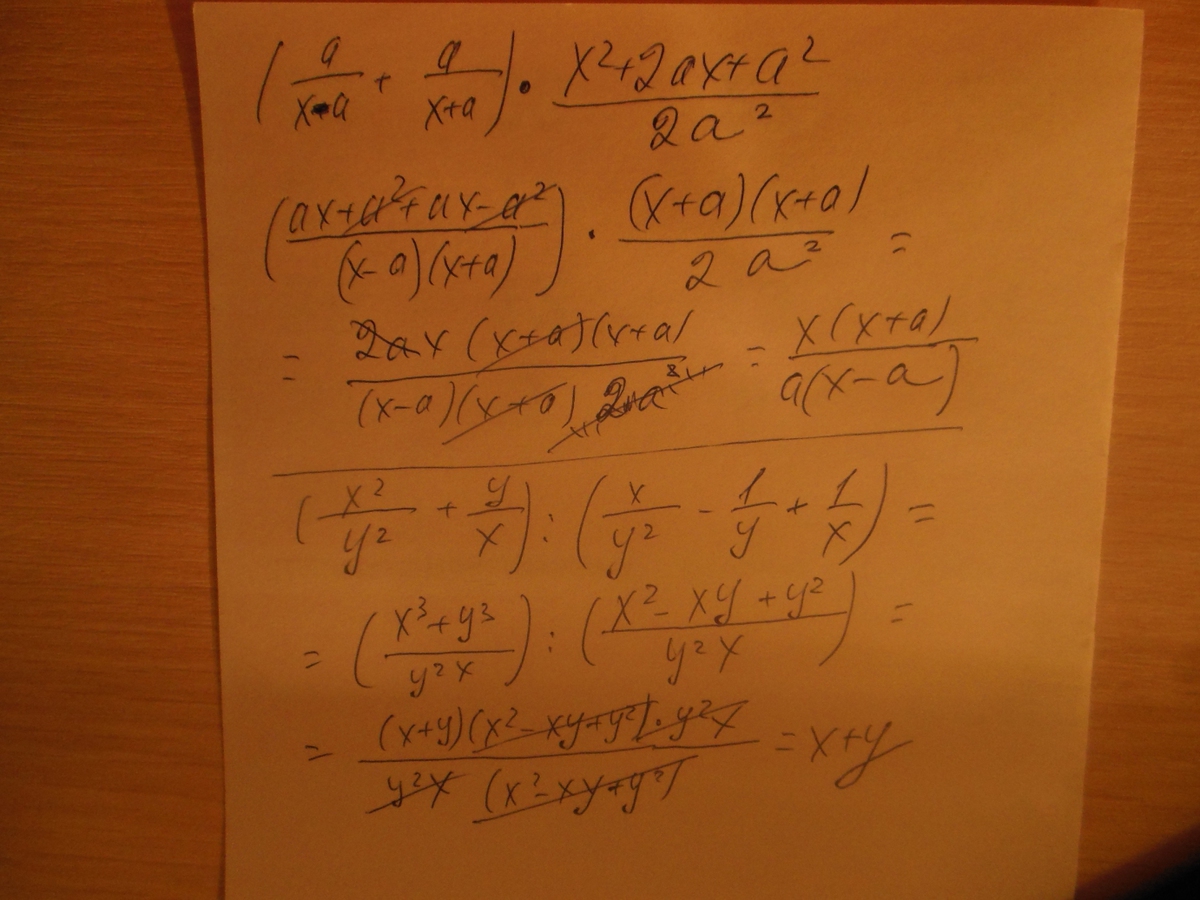 (a/(x-a) + a/(x+a)) · (x²+2ax+a²)/(2a²)
((ax+a²+ax-a²)/((x-a)(x+a))) · ((x+a)(x+a))/(2a²) =
= (2ax(x+a)(x+a))/((x-a)(x+a) 2a²) = (x(x+a))/(a(x-a))
(x²/y² + y/x) : (x/y² - 1/y + 1/x) =
= ((x³+y³)/(y²x)) : ((x²-xy+y²)/(y²x)) =
= ((x+y)(x²-xy+y²)·y²x)/(y²x (x²-xy+y²)) = x+y